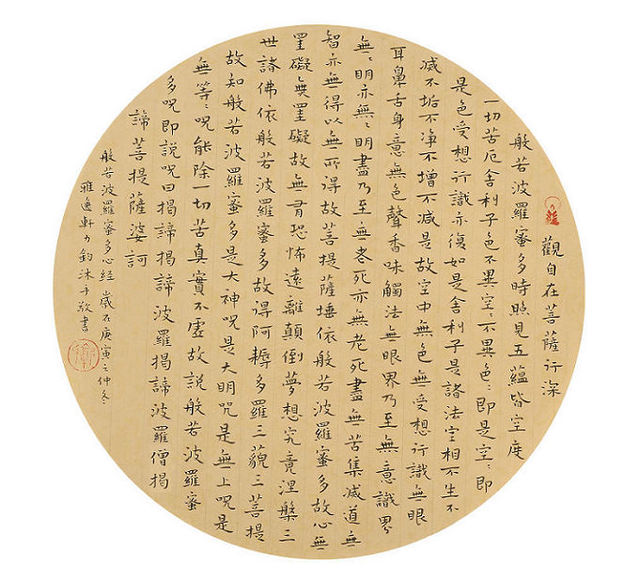 觀自在菩薩行深
般若波羅蜜多時照見五蘊皆空度
一切苦厄舍利子色不異空〻不異色〻即是空〻即
是色受想行識亦復如是舍利子是諸法空相不生不
滅不垢不淨不增不減是故空中無色無受想行識無眼
耳鼻舌身意無色聲香味觸法無眼界乃至無意識界
無〻明亦無〻明盡乃至無老死亦無老死盡無苦集滅道無
智亦無得以無所得故菩提薩埵依般若波羅蜜多故心無
罣礙無罣礙故無有恐怖遠離顛倒夢想究竟涅槃三
世諸佛依般若波羅蜜多故得阿耨多羅三藐三菩提
故知般若波羅蜜多是大神呪是大明呪是無上呪是
無等〻呪能除一切苦真實不虛故說般若波羅蜜
多呪即說呪曰揭諦揭諦波羅揭諦波羅僧揭
諦菩提薩婆訶
般若波羅蜜多心經 歲在庚寅之仲冬
雅逸軒 鈞沐手敬書